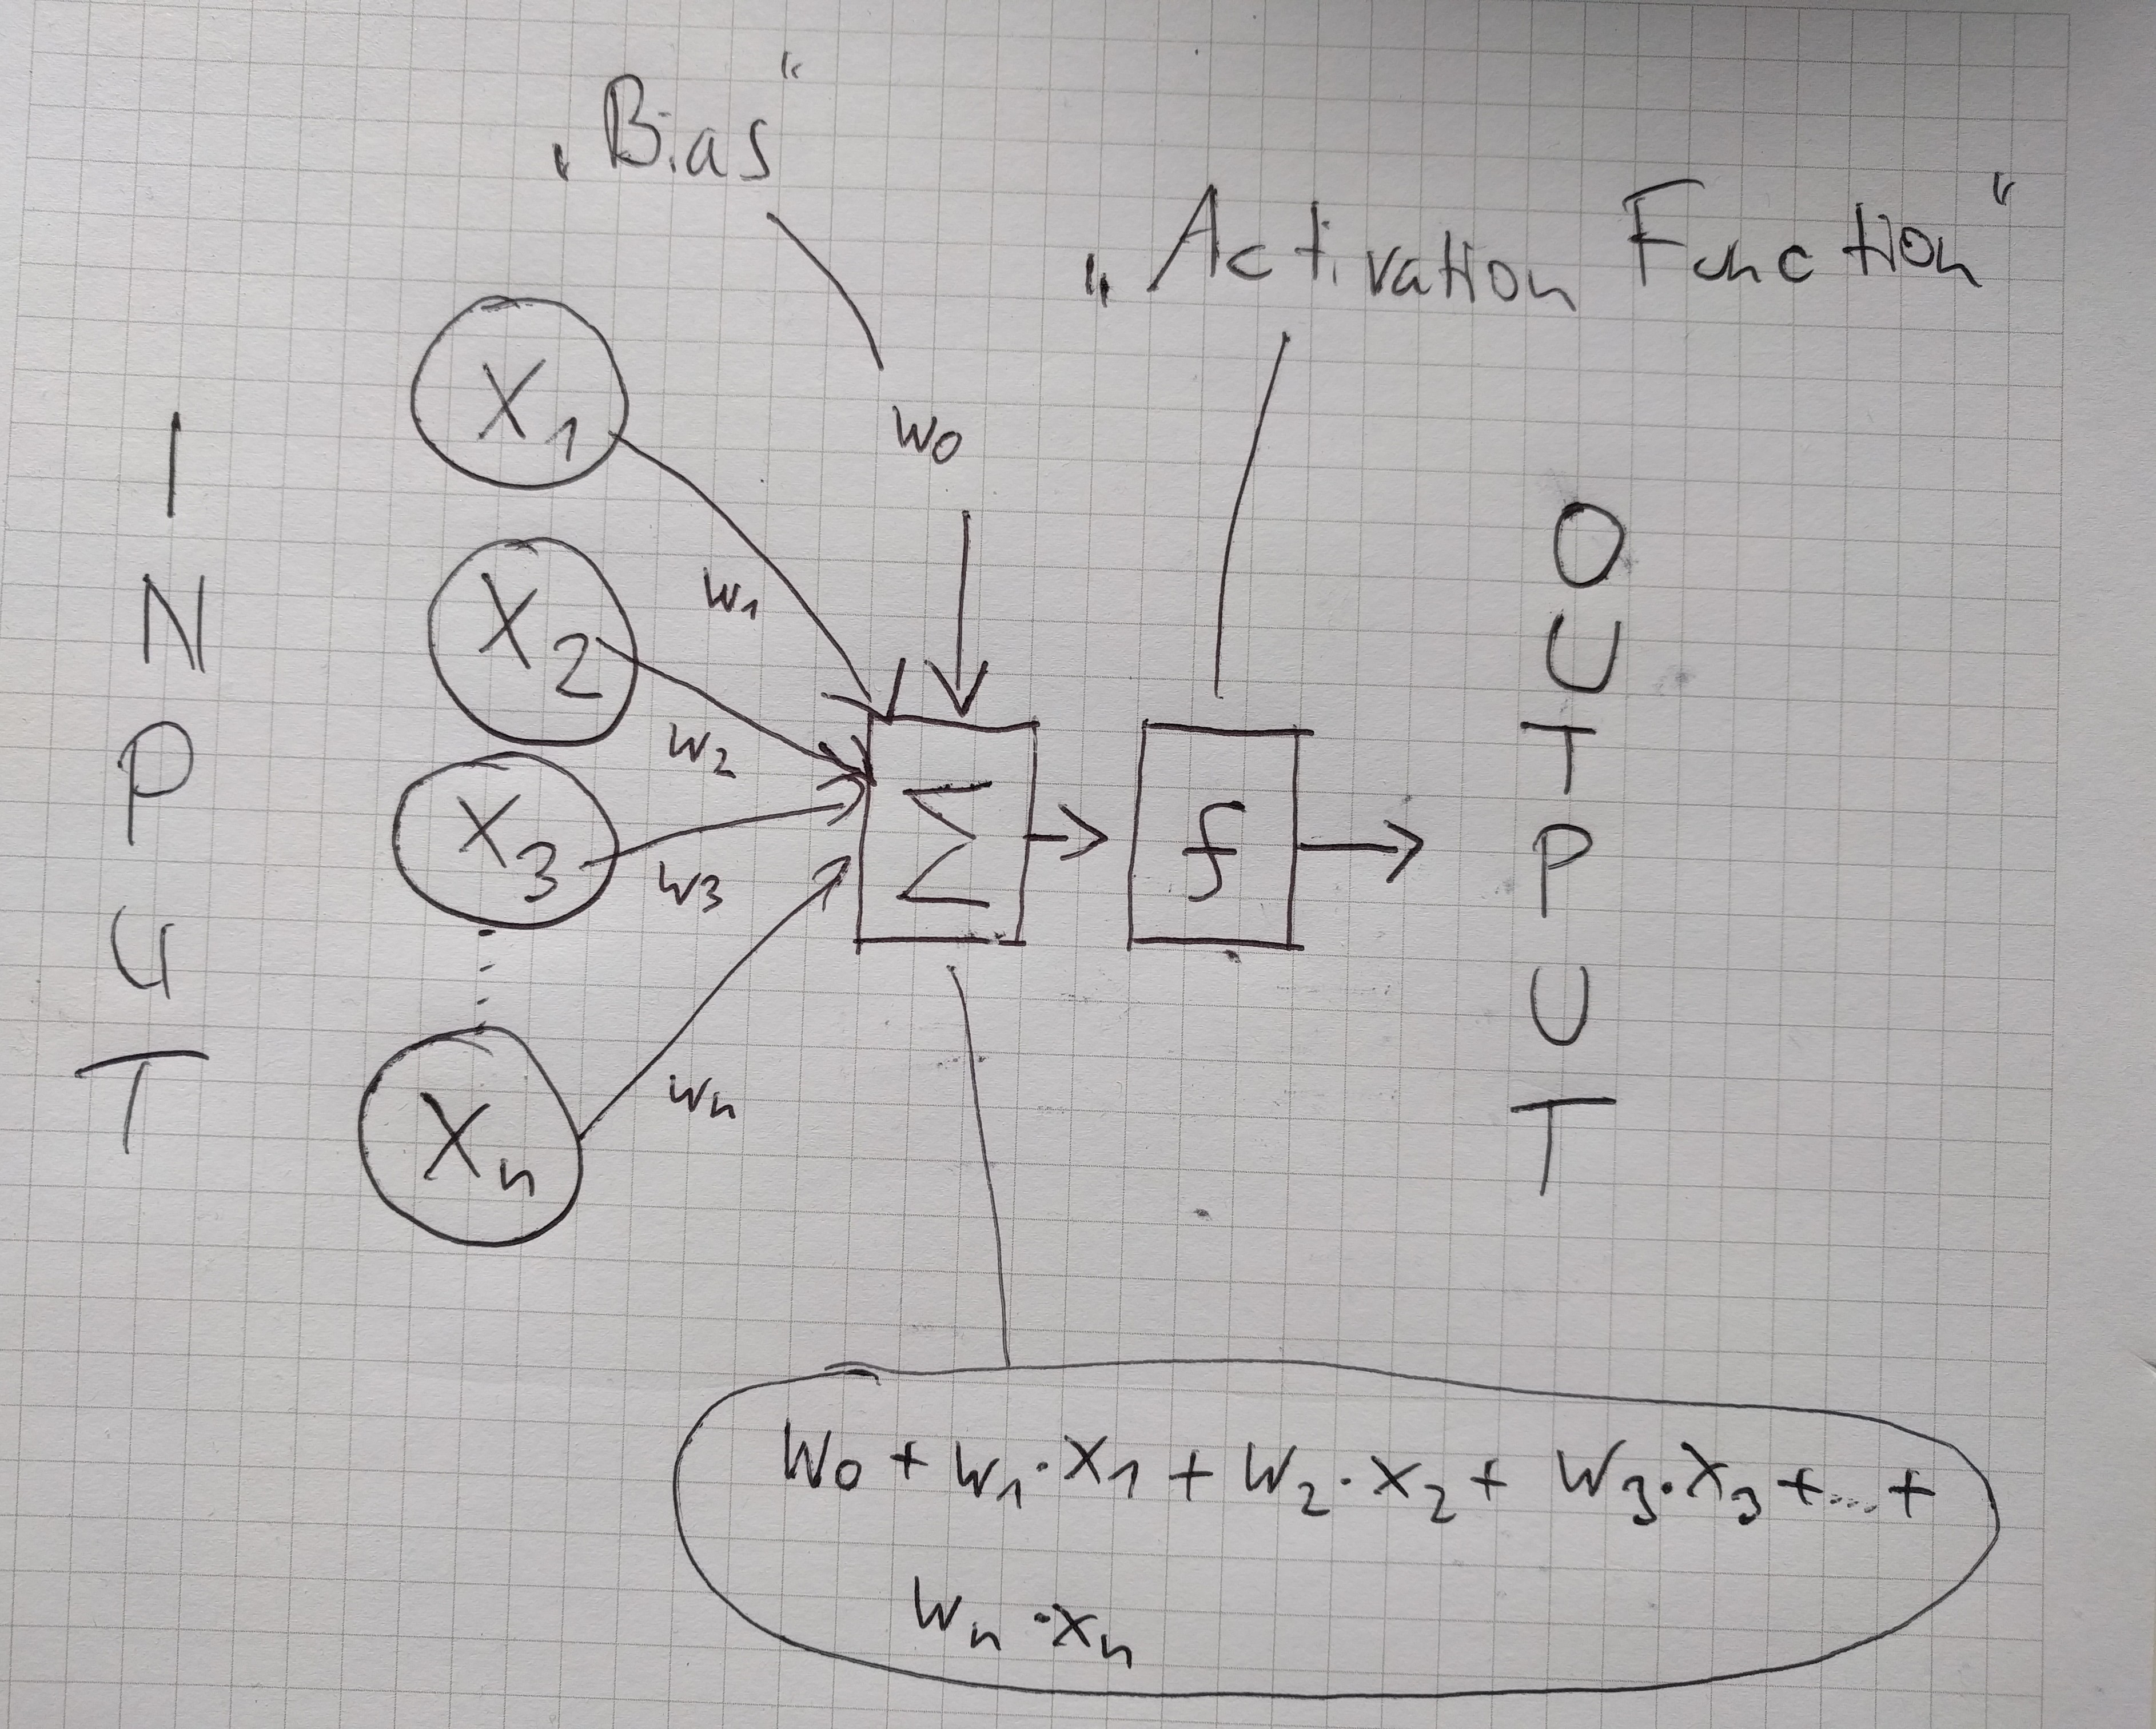 „Bias“
„Activation Function“
INPUT
X1
X2
X3
Xn
w0
w1
w2
w3
wn
Σ
f
OUTPUT
w0 + w1·x1 + w2·x2 + w3·x3 + ... +
wn·xn